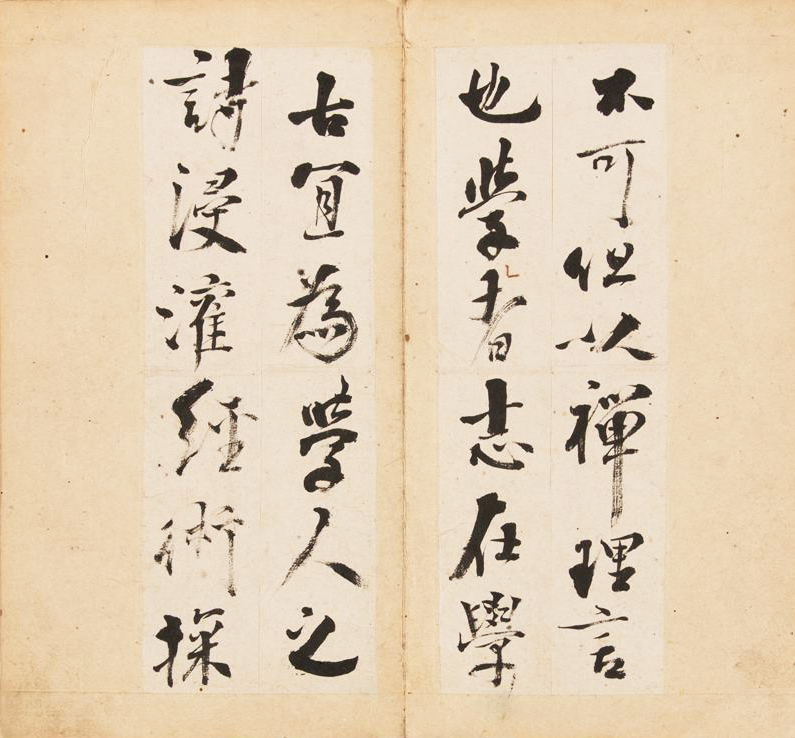 不可但以禪理言
也學者志在學
古宜為學人之
詩浸灌經術探